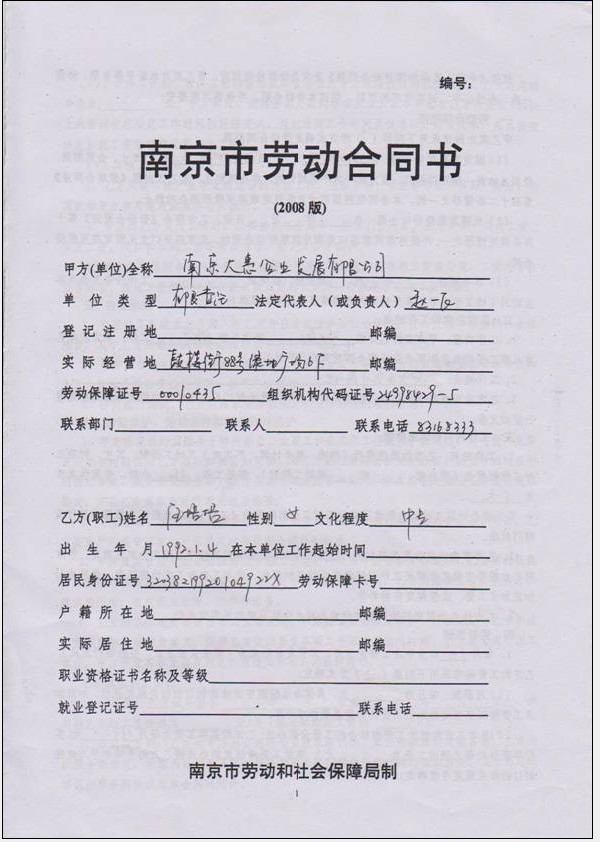 编号：
南京市劳动合同书
(2008 版)
甲方(单位)全称 南京大惠企业发展有限公司
单位类型 有限责任 法定代表人（或负责人）
登记注册地 邮编
实际经营地 鼓楼街88号绿地广场6F 邮编
劳动保障证号 00010435 组织机构代码证号 24998429-5
联系部门 联系人 联系电话 83168333
乙方(职工)姓名 性别 女 文化程度 中专
出生年月 1992.1.4 在本单位工作起始时间
居民身份证号 劳动保障卡号
户籍所在地 邮编
实际居住地 邮编
职业资格证书名称及等级
就业登记证号 联系电话
南京市劳动和社会保障局制
1